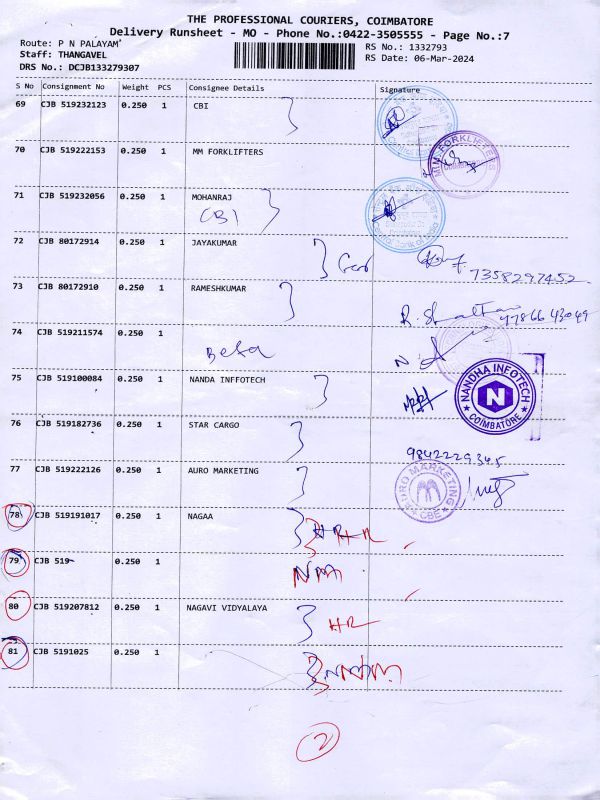 THE PROFESSIONAL COURIERS, COIMBATORE
Delivery Runsheet - MO - Phone No.:0422-3505555 - Page No.:7
Route: P N PALAYAM
RS No.: 1332793
Staff: THANGAVEL
RS Date: 06-Mar-2024
DRS No.: DCJB133279307
S No Consignment No Weight PCS Consignee Details Signature
69 CJB 519232123 0.250 1 CBI
70 CJB 519222153 0.250 1 MM FORKLIFTERS
71 CJB 519232056 0.250 1 MOHANRAJ
CBI
72 CJB 80172914 0.250 1 JAYAKUMAR
7358297452
73 CJB 80172910 0.250 1 RAMESHKUMAR
74 CJB 519211574 0.250 1
75 CJB 519100084 0.250 1 NANDA INFFOTECH
NANDHA INFOTECH
N
COIMBATORE
76 CJB 519182736 0.250 1 STAR CARGO
77 CJB 519222126 0.250 1 AURO MARKETING
AURO MARKETING
CBE
78 CJB 519191017 0.250 1 NAGAA
79 CJB 519- 0.250 1
80 CJB 519207812 0.250 1 NAGAVI VIDYALAYA
81 CJB 5191025 0.250 1
2